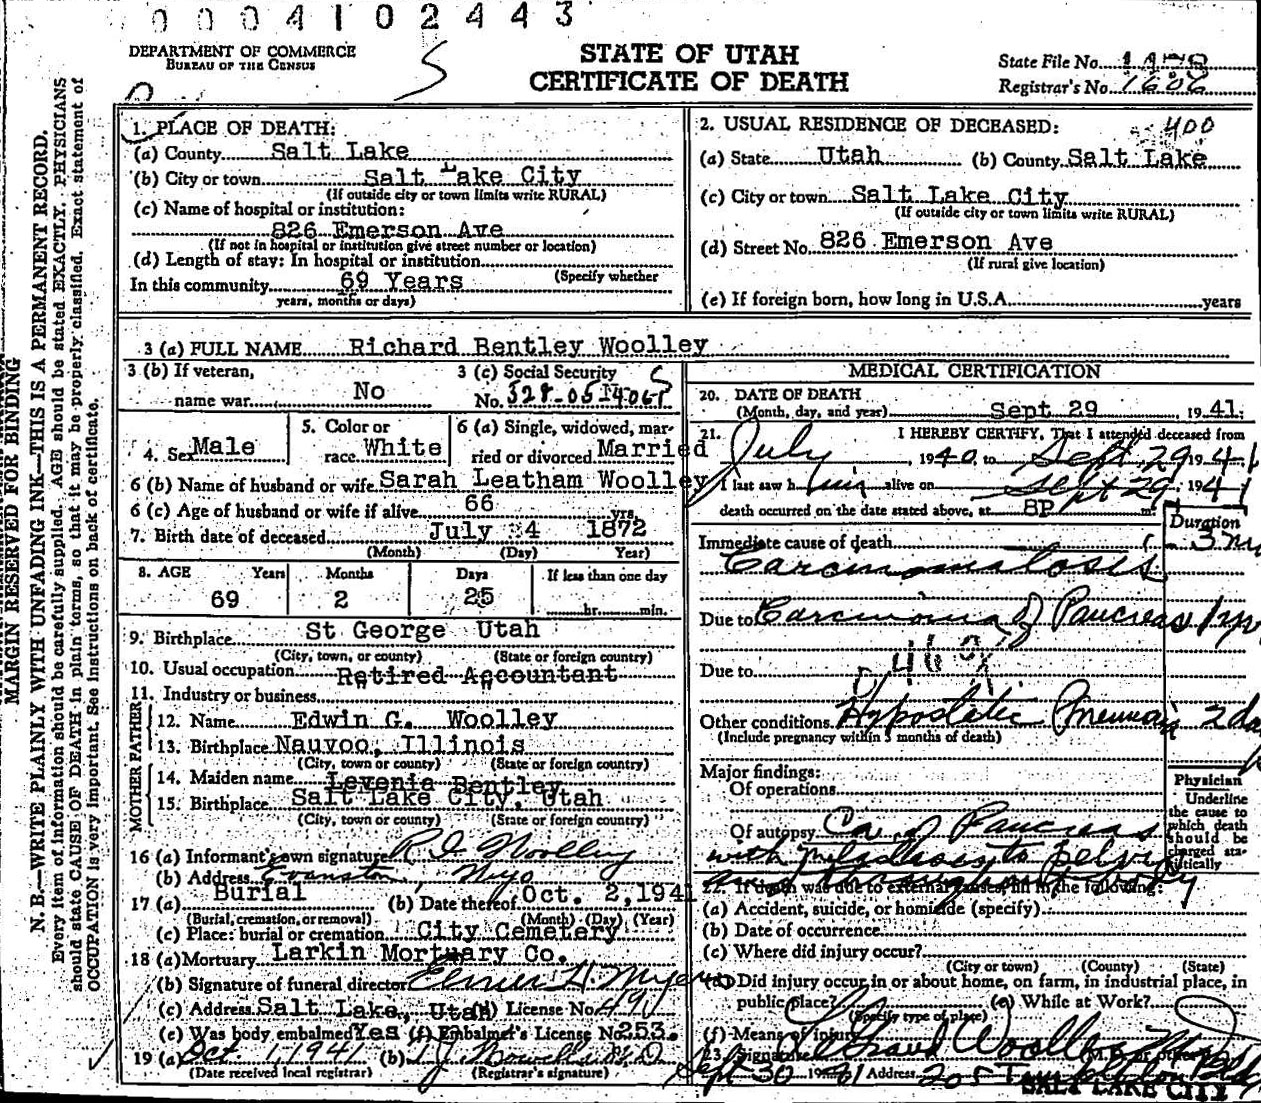 0 0 0 4 1 0 2 4 4 3
DEPARTMENT OF COMMERCE
BUREAU OF THE CENSUS
STATE OF UTAH
CERTIFICATE OF DEATH
State File No.
Registrar's No. 1606
MARGIN RESERVED FOR BINDING
N. B.—WRITE PLAINLY WITH UNFADING INK—THIS IS A PERMANENT RECORD.
Every item of information should be carefully supplied. AGE should be stated EXACTLY. PHYSICIANS
should state CAUSE OF DEATH in plain terms, so that it may be properly classified. Exact statement of
OCCUPATION is very important. See instructions on back of certificate.
1. PLACE OF DEATH:
(a) County Salt Lake
(b) City or town Salt Lake City
(If outside city or town limits write RURAL)
(c) Name of hospital or institution:
826 Emerson Ave
(If not in hospital or institution give street number or location)
(d) Length of stay: In hospital or institution
(Specify whether
In this community 69 Years
years, months or days)
2. USUAL RESIDENCE OF DECEASED: 400
(a) State Utah (b) County Salt Lake
(c) City or town Salt Lake City
(If outside city or town limits write RURAL)
(d) Street No. 826 Emerson Ave
(If rural give location)
(e) If foreign born, how long in U.S.A. years
3 (a) FULL NAME Richard Bentley Woolley
3 (b) If veteran,
name war No
3 (c) Social Security
No. 528-05-4065
4. Sex Male
5. Color or
race White
6 (a) Single, widowed, mar-
ried or divorced Married
6 (b) Name of husband or wife Sarah Leatham Woolley
6 (c) Age of husband or wife if alive 66 yrs.
7. Birth date of deceased July 4 1872
(Month) (Day) Year)
8. AGE Years Months Days If less than one day
69 2 25 hr. min.
9. Birthplace St George Utah
(City, town, or county) (State or foreign country)
10. Usual occupation Retired Accountant
11. Industry or business
FATHER
12. Name Edwin G. Woolley
13. Birthplace Nauvoo, Illinois
(City, town or county) (State or foreign country)
MOTHER
14. Maiden name Levenia Bentley
15. Birthplace Salt Lake City, Utah
(City, town or county) (State or foreign country)
16 (a) Informant's own signature Woolley
(b) Address Evanston, Wyo
17 (a) Burial (b) Date thereof Oct. 2, 1941
(Burial, cremation, or removal) (Month) (Day) (Year)
(c) Place: burial or cremation City Cemetery
18 (a) Mortuary Larkin Mortuary Co.
(b) Signature of funeral director Elmer H. Myers
(c) Address Salt Lake, Utah (d) License No. 491
(e) Was body embalmed Yes (f) Embalmer's License No. 253.
19 (a) Oct 1, 1941 (b) M.D.
(Date received local registrar) (Registrar's signature)
MEDICAL CERTIFICATION
20. DATE OF DEATH
(Month, day, and year) Sept 29, 1941.
21. I HEREBY CERTIFY, That I attended deceased from
July, 1940, to Sept. 29 1941
I last saw him alive on Sept 29 1941
death occurred on the date stated above, at 8P m.
Duration
Immediate cause of death 3 mo
Carcinomatosis
Due to Carcinoma of Pancreas 1 yr
Due to
Other conditions Hypostatic Pneumonia 2 days
(Include pregnancy within 3 months of death)
Major findings:
Of operations
Of autopsy Ca of Pancreas
with metastasis to pelvis
and throughout body
Physician
Underline
the cause to
which death
should be
charged sta-
tistically
22. If death was due to external causes, fill in the following:
(a) Accident, suicide, or homicide (specify)
(b) Date of occurrence
(c) Where did injury occur?
(City or town) (County) (State)
(d) Did injury occur in or about home, on farm, in industrial place, in
public place? (e) While at Work?
(Specify type of place)
(f) Means of injury
23. Signature Woolley M.D. (M.D. or other)
Sept 30 1941 Address 205 Templeton Bldg
SALT LAKE CITY